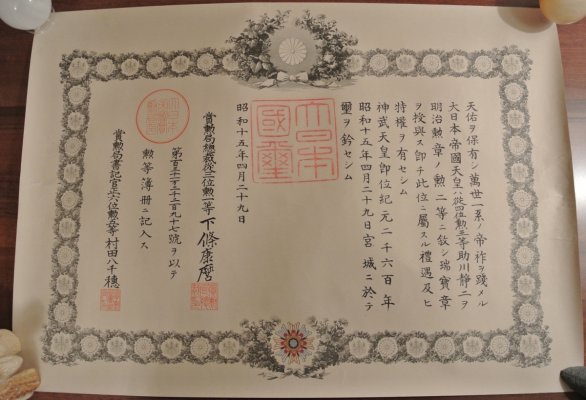 天佑ヲ保有シ萬世一系ノ帝祚ヲ踐メル
大日本帝國天皇ハ從四位勳三等助川靜二ヲ
明治勲章ノ勲二等ニ敍シ瑞寶章
ヲ授與ス即チ此位ニ屬スル禮遇及ヒ
特權ヲ有セシム
神武天皇即位紀元二千六百年
昭和十五年四月二十九日宮城ニ於テ
璽ヲ鈐セシム
大日本
國璽
昭和十五年四月二十九日
賞勲局總裁從三位勲一等下條康麿
勲等簿册ニ記入ス
賞勲局書記官正六位勲五等村田八千穗